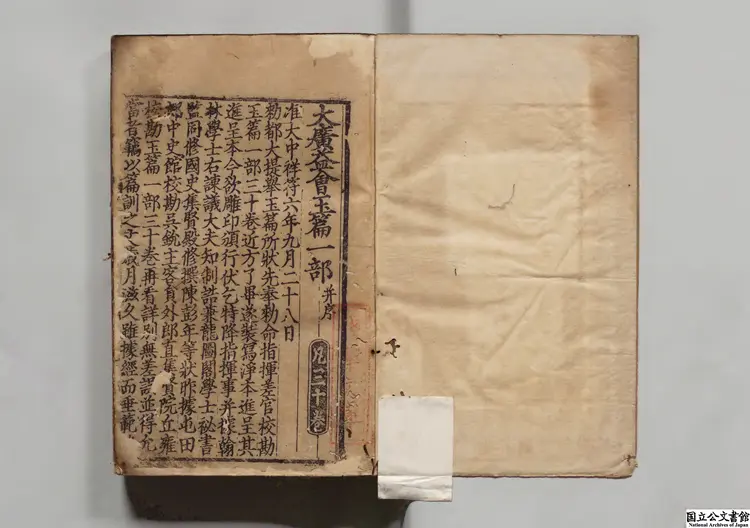 大廣益會玉篇一部 并序
凡三十卷
准大中祥符六年九月二十八日
勑都大提舉玉篇所狀先奉勑命指揮差官校勘
玉篇一部三十卷近方了畢遂裝寫淨本進呈其
進呈本今欲雕印頒行伏乞特降指揮事并據翰
林學士右諫議大夫知制誥兼龍圖閣學士祕書
監同修國史集賢殿修撰陳彭年等狀昨據屯田
郎中史館校勘吳銳主客員外郎直集賢院丘雍
校勘玉篇一部三十卷再看詳別無差誤並得允
當者 篇訓之 歲月滋久雖據經而垂範
国立公文書館
National Archives of Japan